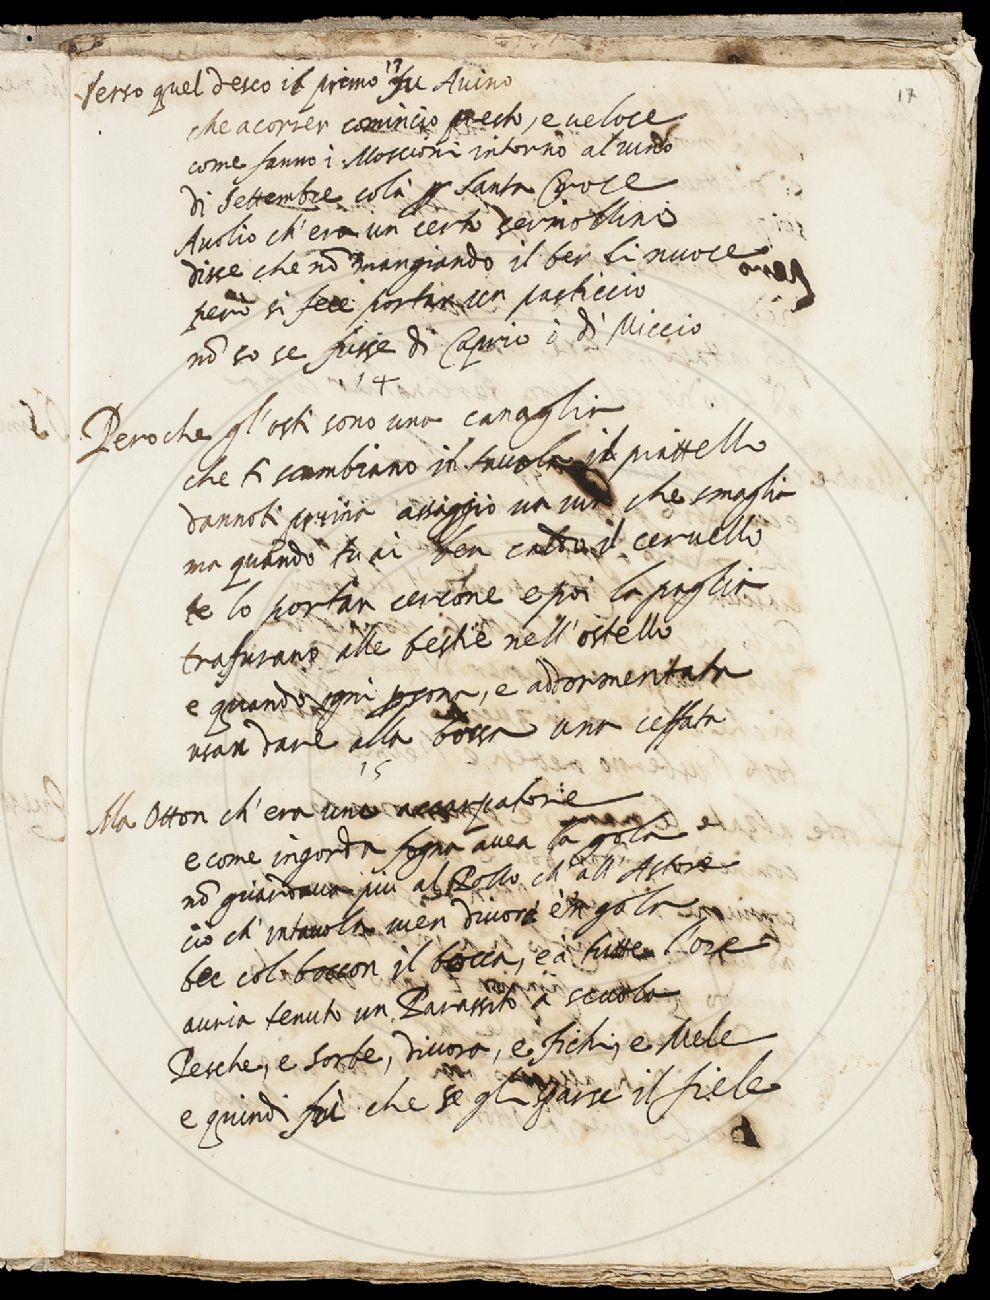 17
13
Verso quel desco il primo fu Avino
che a correr comincio presto, e veloce
come fanno i Moscioni intorno al vino
di Settembre colà p Santa Croce
Avolio ch'era un certo serinollino
disse che nō mangiando il ber li nuoce
però si fece portar un pasticcio
nō so se fusse di Caprio ò di Miccio
14
Peroche gl'osti sono una canaglia
che ti scambiano in tavola il piattello
dannoti prima assaggio un vin che smaglia
ma quando tu ai ben caldo il cervello
te lo portan cercone e poi la paglia
trafurano alle bestie nell'ostello
e quando ogni psona, e addormentata
usan dare alla borsa una ceffata
15
Ma Otton ch'era uno accarpatore
e come ingorda fogna avea la gola
nō guardava più al Pollo ch'all'Astore
ciò ch'in tavola vien divora e 'n gola
bee col boccon il bocca, e à tutte l'ore
auria tenuto un Parassito à scuola
Pesche, e Sorbe, divora, e fichi, e Mele
e quindi fù che se gli sparse il fiele